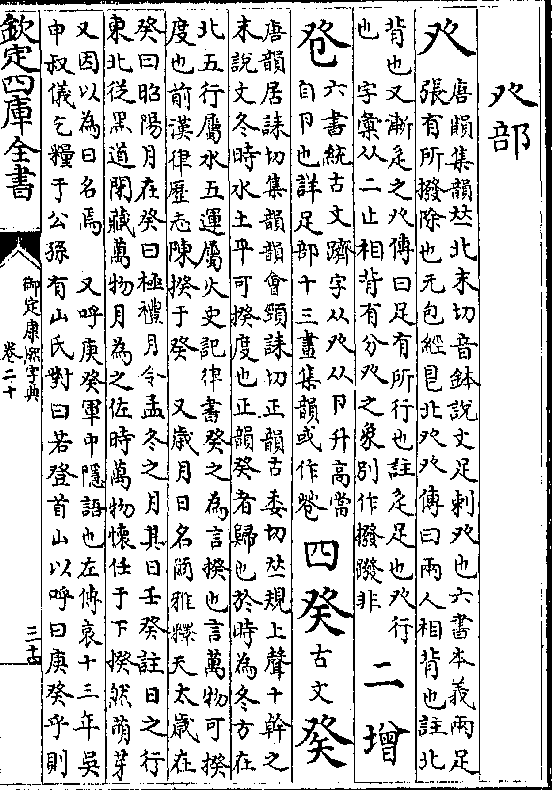 癶部
癶
唐韻集韻𠀤北末切音鉢說文足剌癶也六書本義兩足
張有所撥除也元包經䷖北癶癶傳曰兩人相背也註北
背也又漸辵之癶傳曰足有所行也註辵足也癶行
也 字彙从二止相背有分癶之象別作撥蹳非
二增
六書統古文躋字从癶从𨸏升高當
自𨸏也詳足部十三畫集韻或作
四
癸
古文
癸
唐韻居誄切集韻韻會頸誄切正韻古委切𠀤規上聲十幹之
末說文冬時水土平可揆度也正韻癸者歸也於時為冬方在
北五行屬水五運屬火史記律書癸之為言揆也言萬物可揆
度也前漢律歷志陳揆于癸 又歲月日名爾雅釋天太歲在
癸曰昭陽月在癸曰極禮月令孟冬之月其日壬癸註日之行
東北從黑道閉藏萬物月為之佐時萬物懷任于下揆然萌芽
又因以為日名焉 又呼庚癸軍中隱語也左傳哀十三年吳
申叔儀乞糧于公孫有山氏對曰若登首山以呼曰庚癸乎則
欽定四庫全書
御定康熙字典
卷二十
三十四